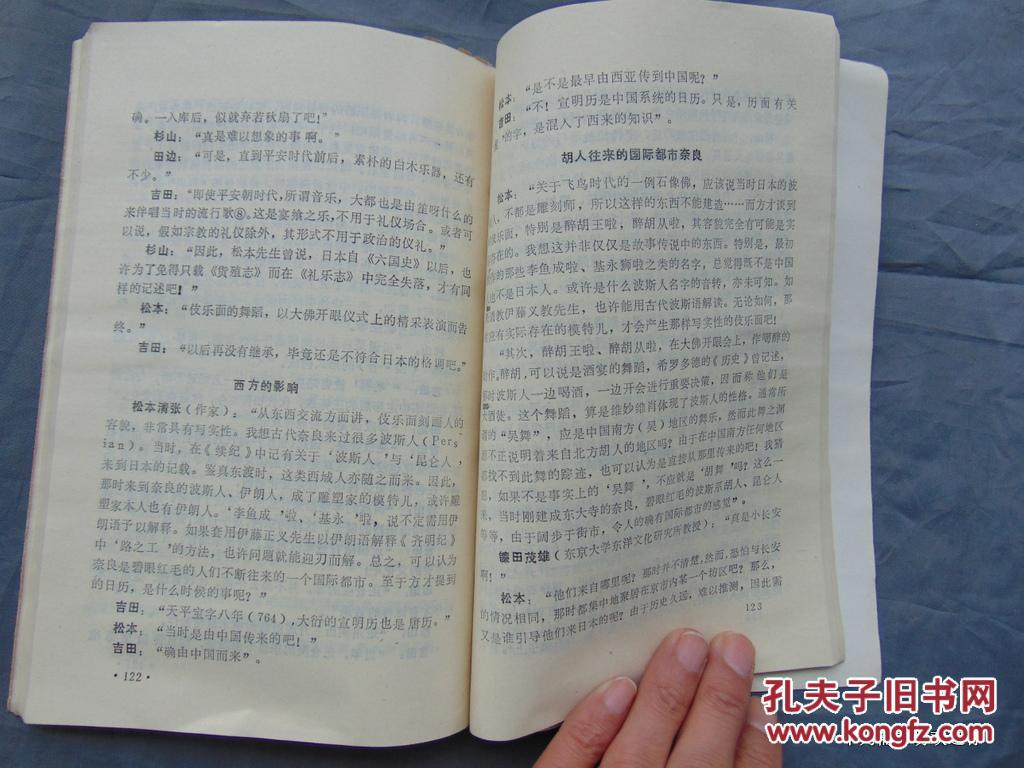 确。一入库后，似就弃若秋扇了吧！”
杉山：“真是难以想象的事啊。”
田边：“可是，直到平安时代前后，素朴的白木乐器，还有
不少。”
吉田：“即使平安朝时代，所谓音乐，大都也是由笙呀什么的
来伴唱当时的流行歌⑧。这是宴飨之乐，不用于礼仪场合。或者可
以说，假如宗教的礼仪除外，其形式不用于政治的仪礼。”
杉山：“因此，松本先生曾说，日本自《六国史》以后，也
许为了免得只载《货殖志》而在《礼乐志》中完全失落，才有同
样的记述吧！”
松本：“伎乐面的舞蹈，以大佛开眼仪式上的精采表演而告
终。”
吉田：“以后再没有继承，毕竟还是不符合日本的格调吧。”
西方的影响
松本清张（作家）：“从东西交流方面讲，伎乐面刻画人的
容貌，非常具有写实性。我想古代奈良来过很多波斯人（Pers
ian）。当时，在《续纪》中记有关于‘波斯人’与‘昆仑人’，
来到日本的记载。鉴真东渡时，这类西域人亦随之而来。因此，
那时来到奈良的波斯人、伊朗人，成了雕塑家的模特儿，或许雕
塑家本人也有伊朗人。‘李鱼成’啦、‘基永’啦，说不定需用伊
朗语予以解释。如果套用伊藤正义先生以伊朗语解释《齐明纪》
中‘路之工’的方法，也许问题就能迎刃而解。总之，可以认为
奈良是碧眼红毛的人们不断往来的一个国际都市。至于方才提到
的日历，是什么时候的事呢？”
吉田：“天平宝字八年（764），大衍的宣明历也是唐历。”
松本：“当时是由中国传来的吧！”
吉田：“确由中国而来”。
·122·
松本：“是不是最早由西亚传到中国呢？”
吉田：“不！宣明历是中国系统的日历。只是，历面有关
’的字，是混入了西来的知识”。
胡人往来的国际都市奈良
松本：“关于飞鸟时代的一例石像佛，应该说当时日本的波
人，不都是雕刻师，所以这样的东西不能建造……而方才谈到
伎乐面，特别是醉胡王啦，醉胡从啦，其客貌完全有可能是实
存在的。我想这并非仅仅是故事传说中的东西。特别是，最初
作的那些李鱼成啦、基永狮啦之类的名字，总觉得既不是中国
也不是日本人。或许是什么波斯人名字的音转，亦未可知。如
请教伊藤义教先生，也许能用古代波斯语解读。无论如何，那
竟有实际存在的模特儿，才会产生那样写实性的伎乐面吧！
“其次，醉胡王啦、醉胡从啦，在大佛开眼会上，作喝醉的
作。醉胡，可以说是酒宴的舞蹈，希罗多德的《历史》曾记述，
时波斯人一边喝酒，一边开会进行重要决策，因而称他们是
大酒徒。这个舞蹈，算是维妙维肖体现了波斯人的性格。通常所
谓的“吴舞”，应是中国南方（吴）地区的舞乐，然而此舞之渊
不正说明着来自北方胡人的地区吗？由于在中国南方任何地区
都找不到此舞的踪迹，也可以认为是直接从那里传来的吧！我猜
想，如果不是事实上的‘吴舞’，不应就是‘胡舞’吗？这么一
来，当时刚建成东大寺的奈良，碧眼红毛的波斯系胡人、昆仑人
等等，由于阔步于街市，令人的确有国际都市的感觉”。
镰田茂雄（东京大学东洋文化研究所教授）：“真是小长安
啊！”
松本：“他们来自哪里呢？那时并不清楚，然而，恐怕与长安
的情况相同，那时都集中地聚居在京市内某一个坊区吧？那么，
又是谁引导他们来日本的呢？由于历史久远，难以推测，因此需
123
孔夫子旧书网
www.kongfz.com